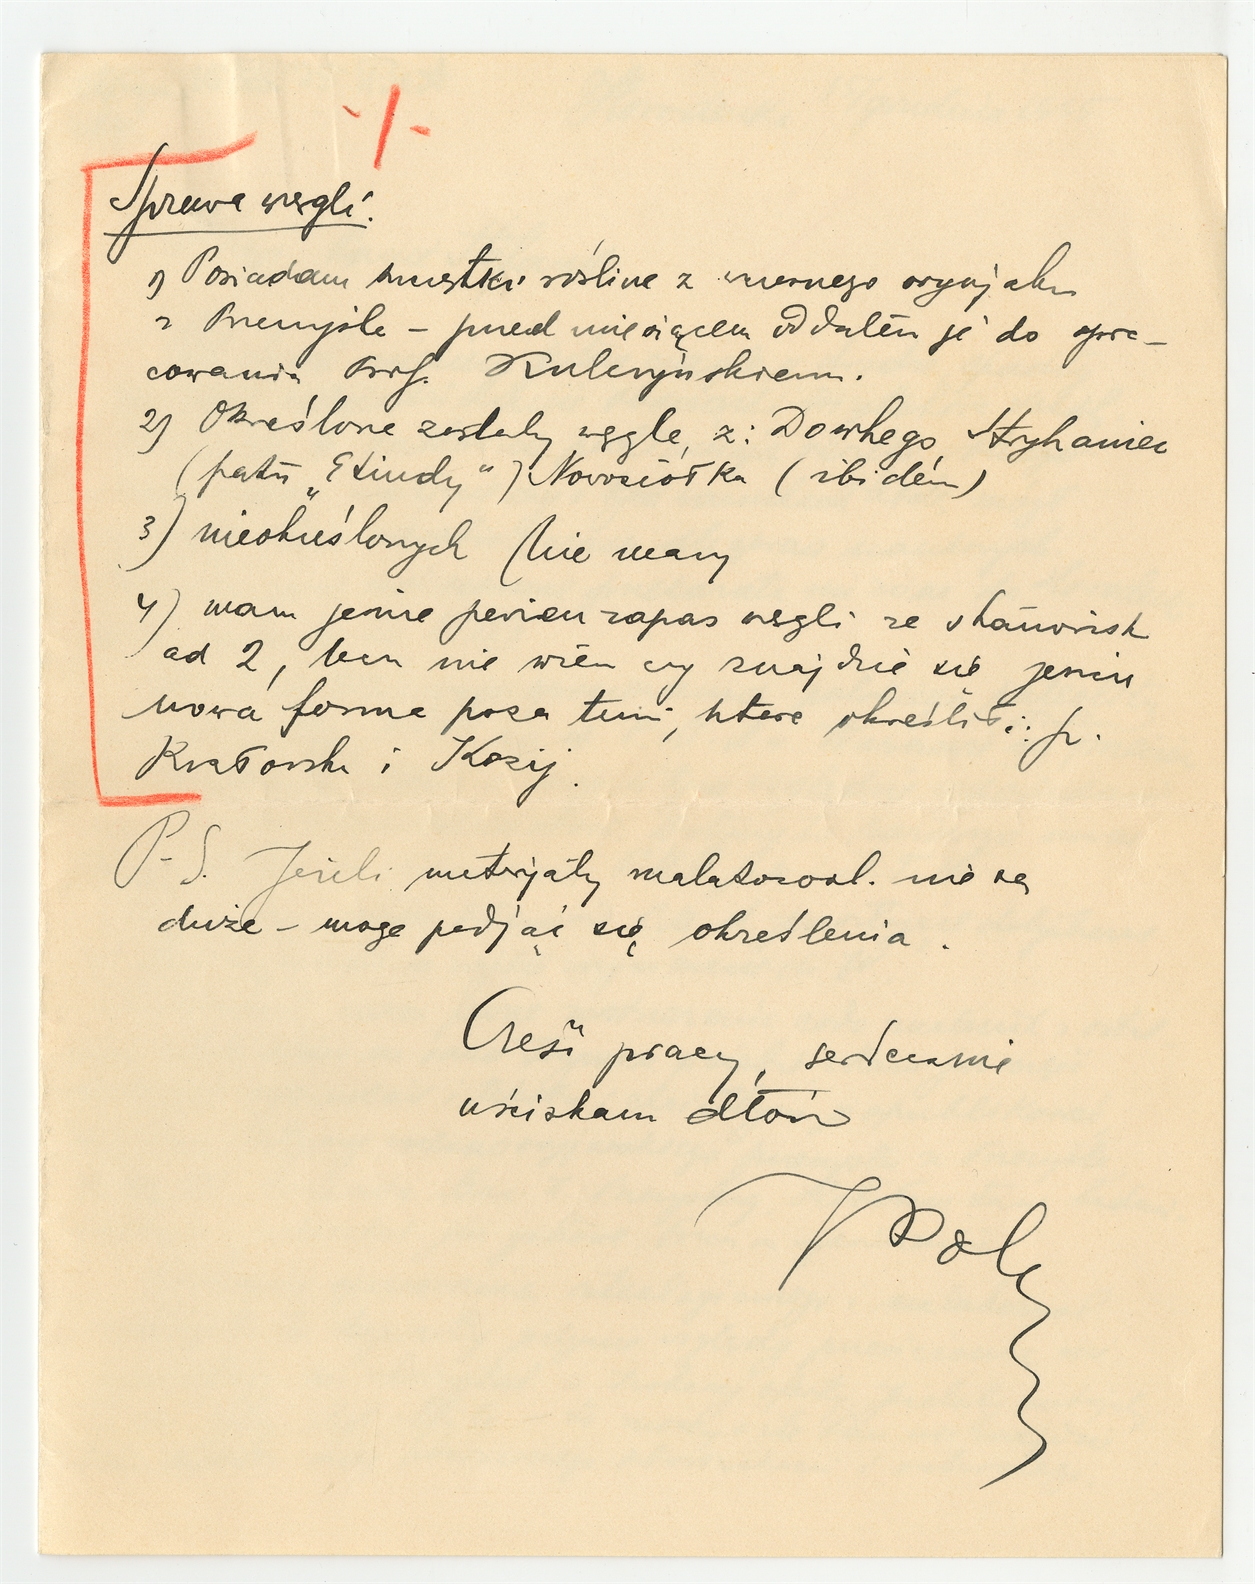 Sprawa węgli.
1) Posiadam szczątki roślinne z
z Przemyśla – przed miesiącem oddałem je do opra-
cowania Prof. Kulczyńskiemu.
2) Określone zostały węgle z: Dowhego, Stryhaniec
(patrz „Etiudy") Nowosiółka (ibidem)
3) nieokreślonych nie mamy
4) mam jeszcze pewien zapas węgli ze stanowisk
ad 2, lecz nie wiem czy znajdzie się jeszcze
nowa forma poza temi, które określili: p.
i Kozij.
P.S. Jeżeli materjały malakozool. nie są
duże – mogę podjąć się określenia.
Cześć pracy, serdecznie
uściskam dłoń